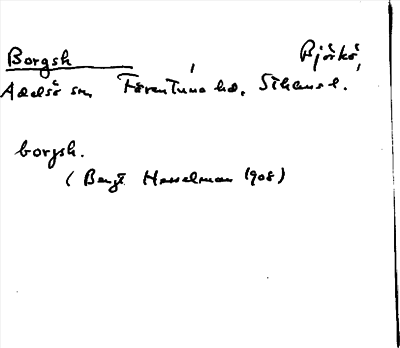 Borgsh Björkö,
Adelsö sn, Färentuna hd. Sthms l.
borgsh.
(Bengt Hesselman 1908)